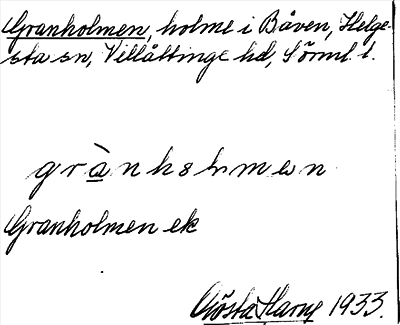 Granholmen, holme i Båven, Helge-
sta sn, Villåttinge hd, Sörml. l.
grànhɷmen
Granholmen ek
Gösta Harng 1933.